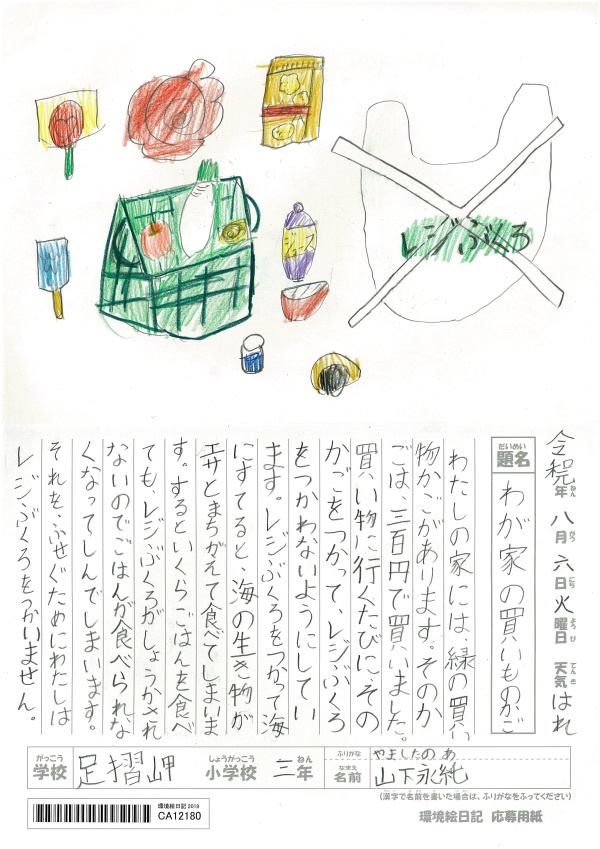 レジぶくろ
ジュース
令和元年八月六日火曜日 天気はれ
ねん がつ にち ようび てんき
だいめい
題名 わが家の買いものかご
わたしの家には、緑の買い
物かごがあります。そのか
ごは、三百円で買いました。
買い物に行くたびに、その
かごをつかって、レジぶくろ
をつかわないようにしてい
ます。レジぶくろをつかって海
にすてると、海の生き物が
エサとまちがえて食べてしまいま
す。するといくらごはんを食べ
ても、レジぶくろがしょうかされ
ないのでごはんが食べられな
くなってしんでしまいます。
それを、ふせぐためにわたしは
レジぶくろをつかいません。
がっこう しょうがっこう ねん
学校 足摺岬 小学校 三年
ふりがな やましたの あ
なまえ
名前 山下永純
(漢字で名前を書いた場合は、ふりがなをふってください)
環境絵日記 2019
CA12180
環境絵日記 応募用紙